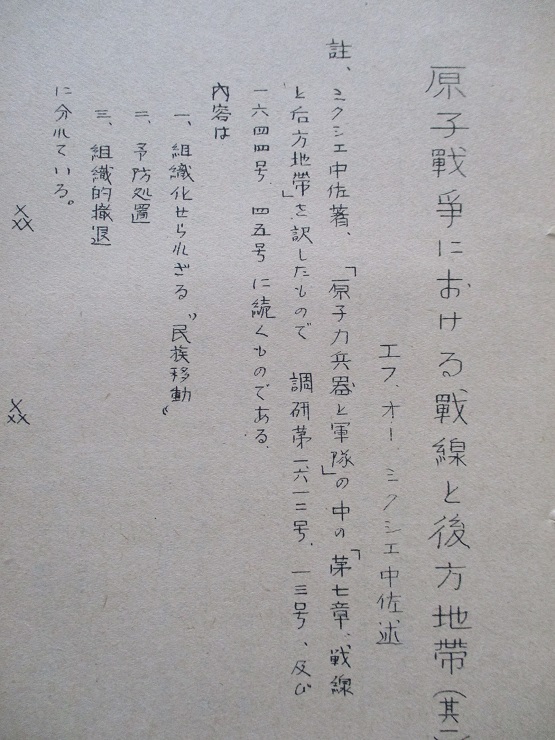 原子戰爭における戰線と後方地帶(其一
エフ、オー、ミクシエ中佐述
註、ミクシエ中佐著、「原子力兵器と軍隊」の中の「第七章、戦線
と后方地帯」を訳したもので 調研第一六一二号、一三号、及び
一六四四号、四五号に続くものである、
内容は
一、組織化せられざる〝民族移動〟
二、予防処置
三、組織的撤退
に分れている。
××× ×××